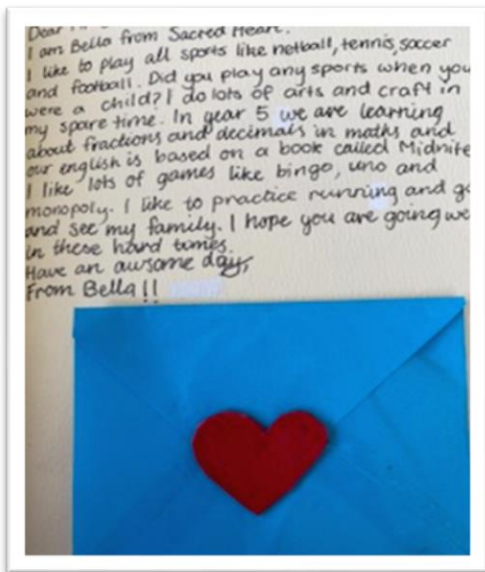 Dear
I am Bella from Sacred Heart.
I like to play all sports like netball, tennis, soccer
and football. Did you play any sports when you
were a child? I do lots of arts and craft in
my spare time. In year 5 we are learning
about fractions and decimals in maths and
our english is based on a book called Midnite
I like lots of games like bingo, uno and
monopoly. I like to practice running and go
and see my family. I hope you are going we
in these hard times.
Have an awsome day,
From Bella!!